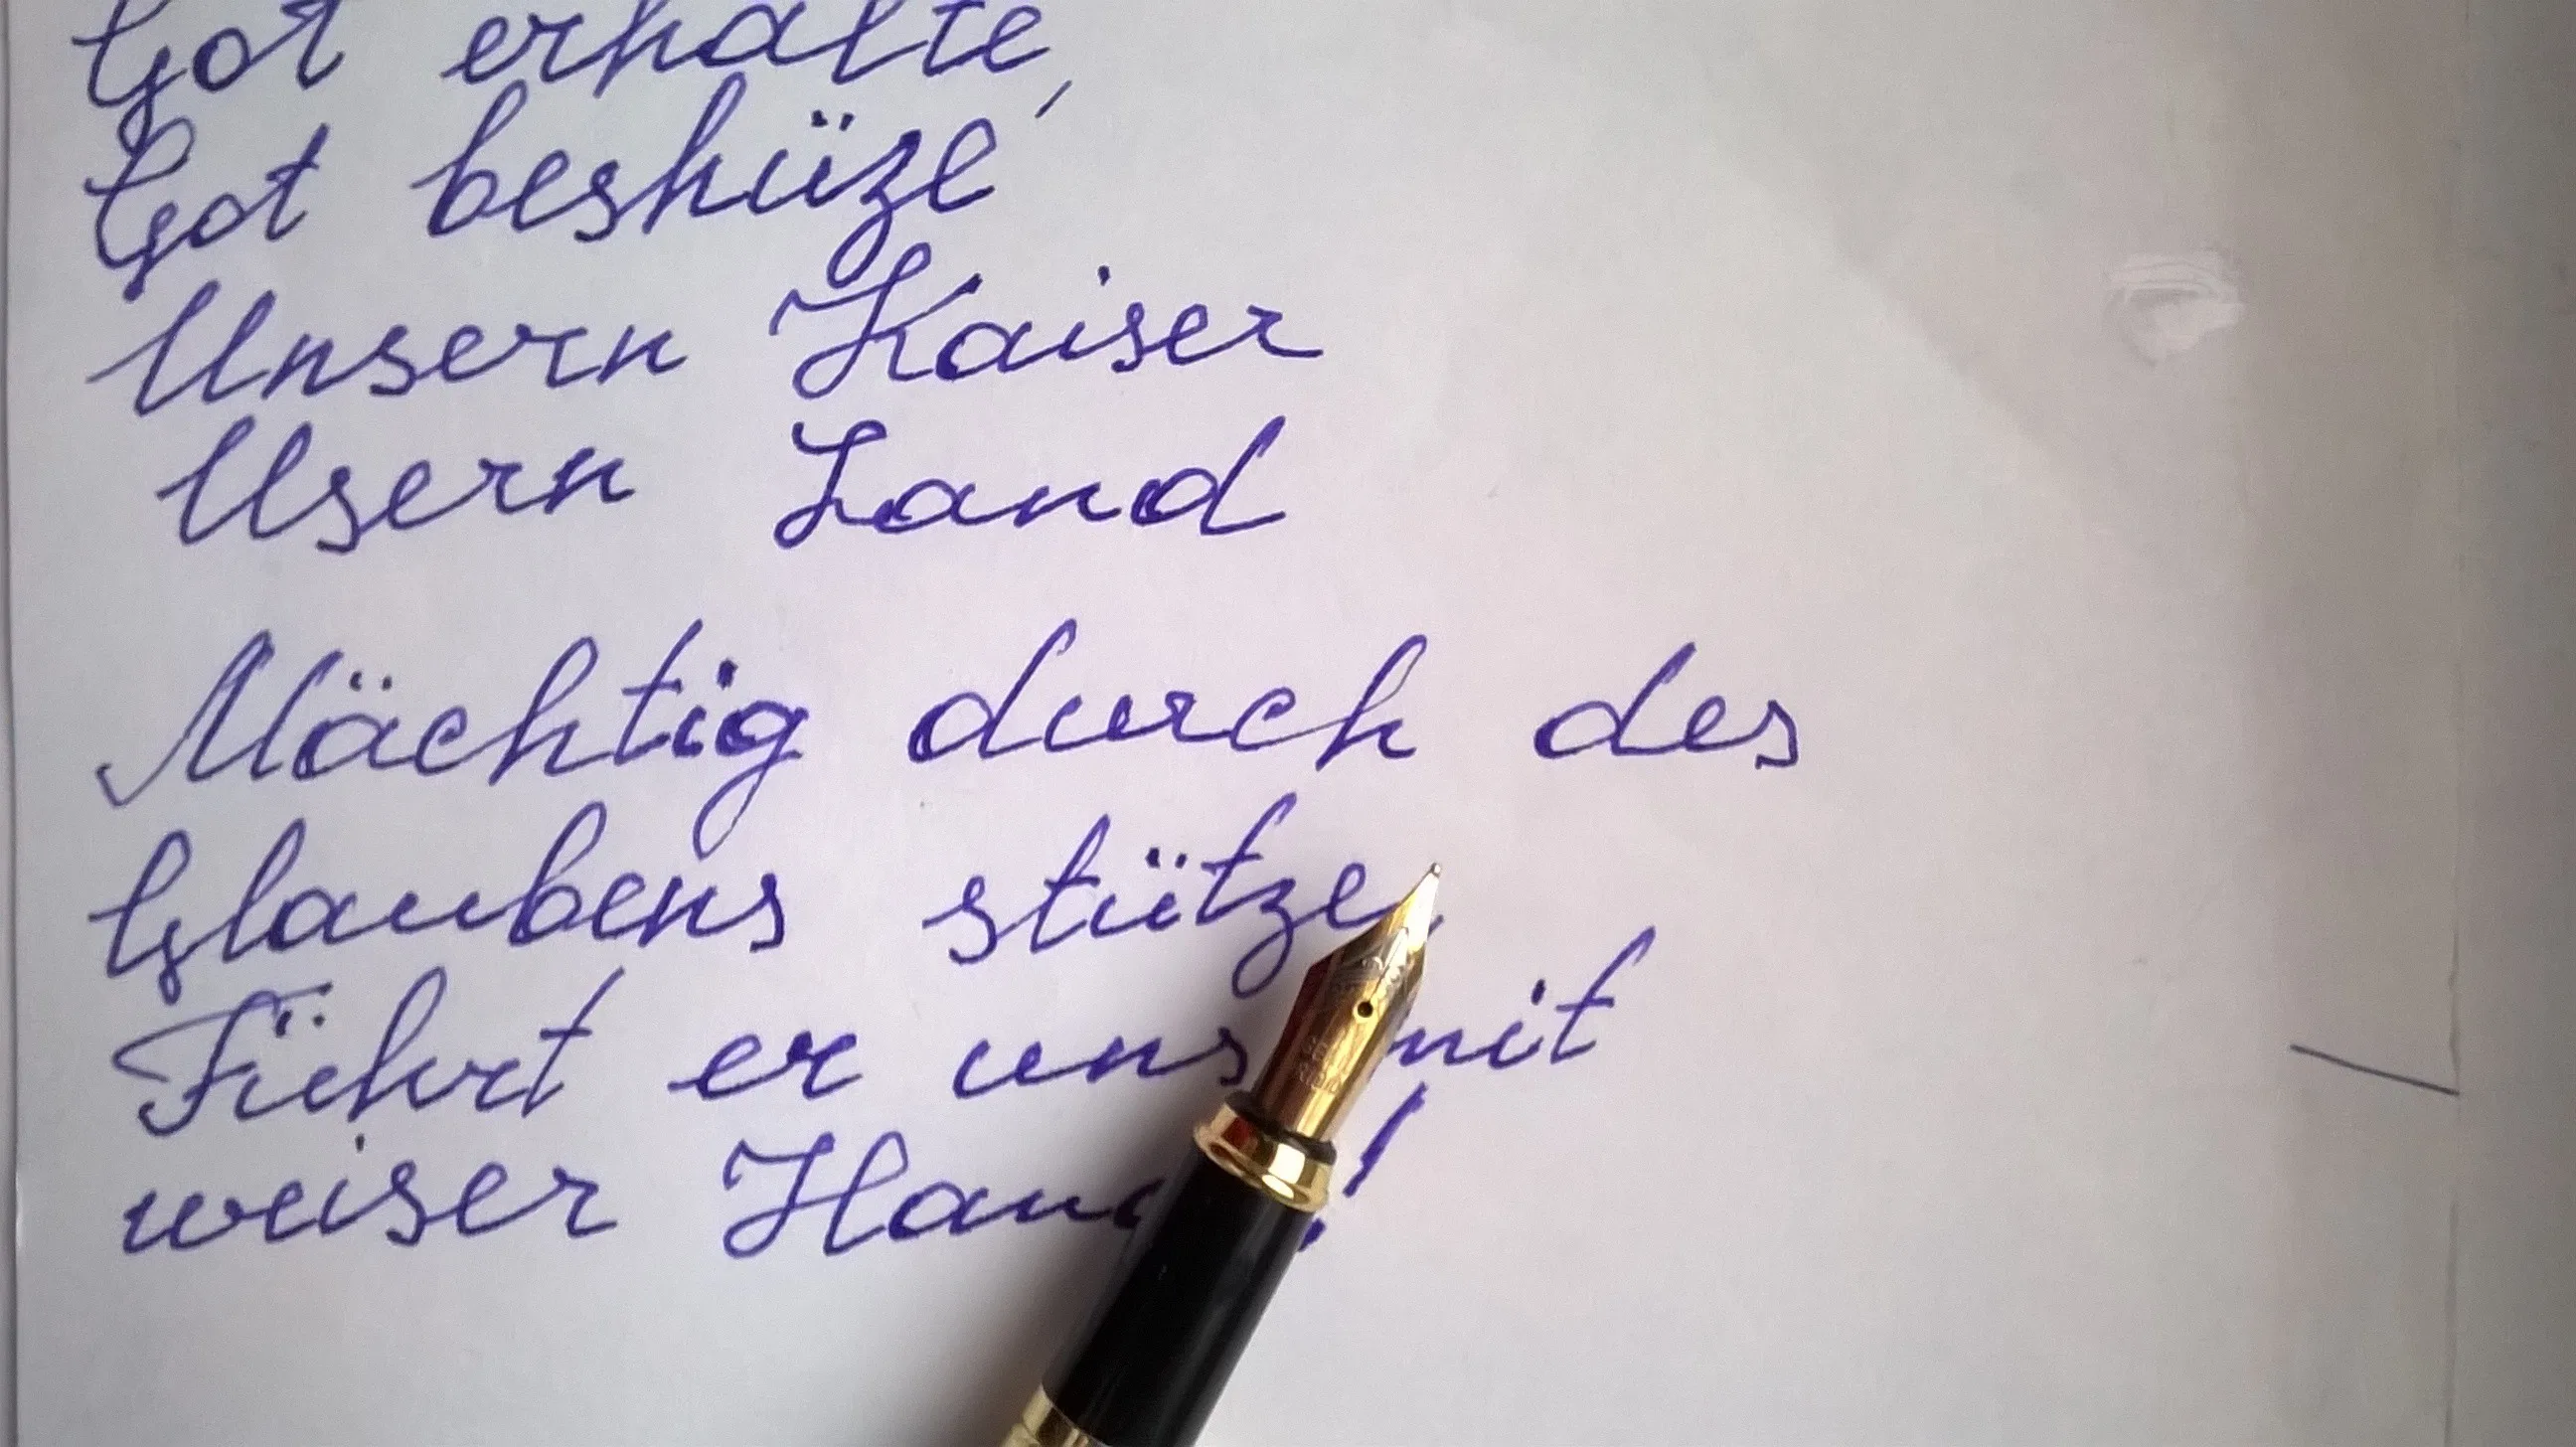 Got erhalte,
Got beshüze
Unsern Kaiser
Usern Land
Mächtig durch des
Glaubens stütze,
Führt er uns mit
weiser Hand!